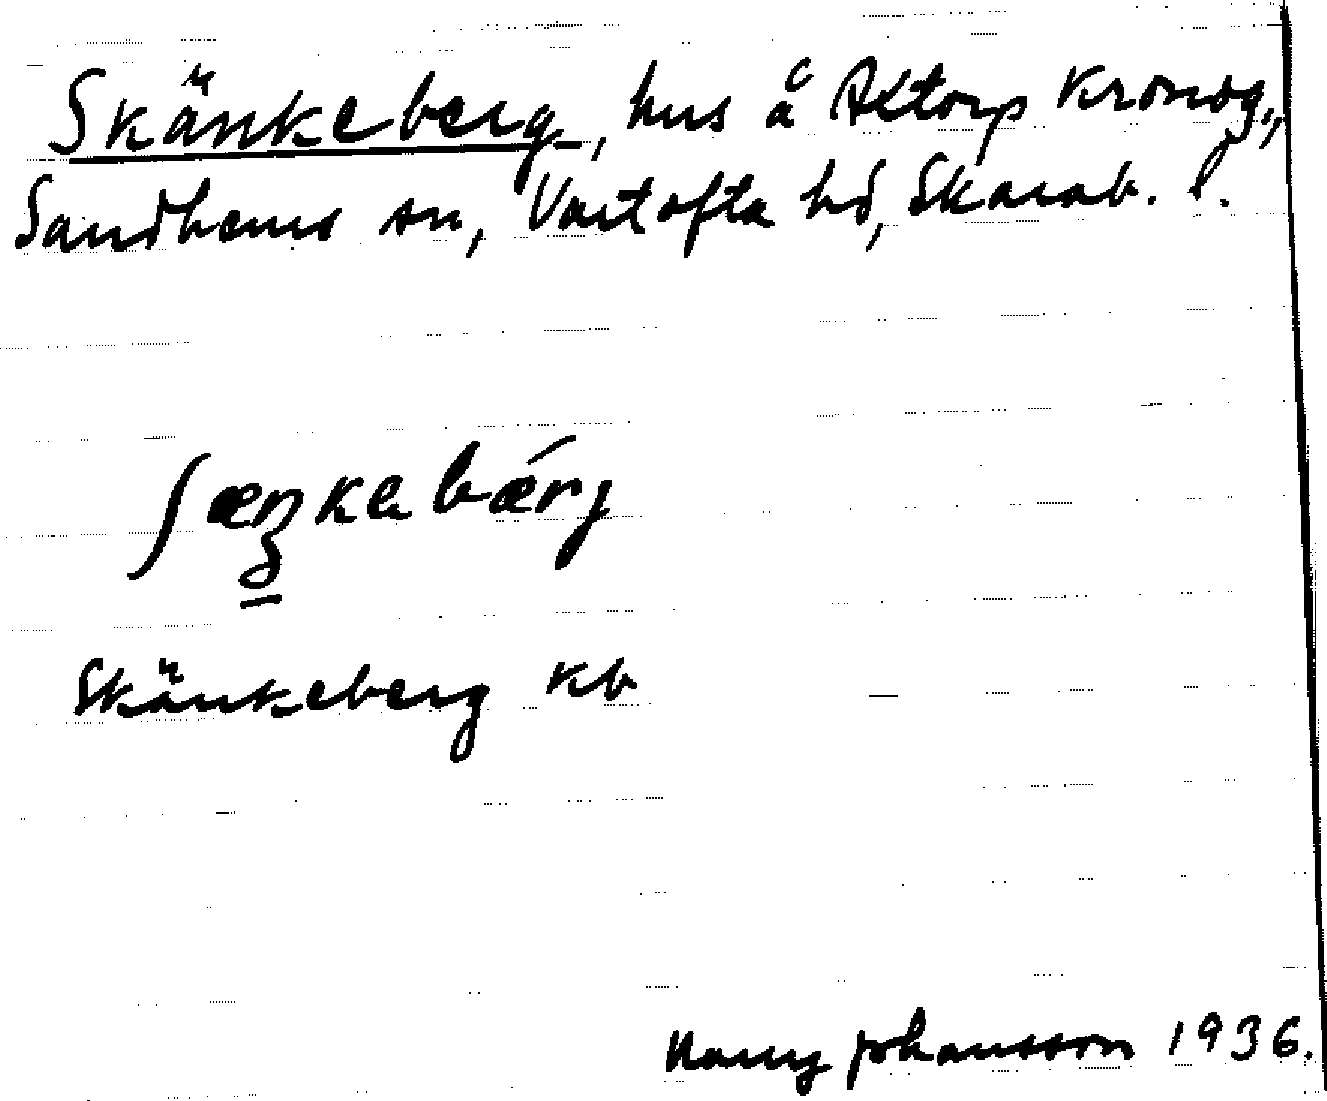 Skänkeberg, hus å Aktorp kronog.,
Sandhems sn, Vartofta hd, Skarab. l.
ʃæŋkabǽrj
Skänkeberg kb
Harry Johansson 1936.